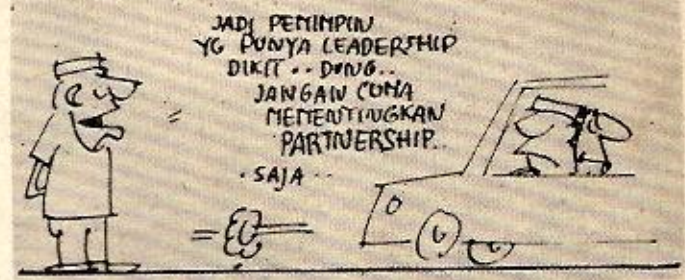 JADI PEMIMPIN
YG PUNYA LEADERSHIP
DIKIT .. DONG..
JANGAN CUMA
MEMENTINGKAN
PARTNERSHIP..
.SAJA ..